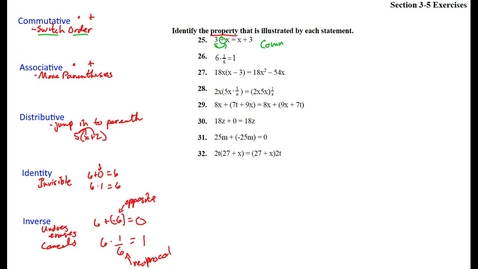 Section 3-5 Exercises
Commutative • +
- Switch Order
Associative • +
- Move Parentheses
Distributive
- jump in to parenth
5(x+2)
Identity
Invisible
6+0=6
6·1=6
Inverse
Undoes
erases
Cancels
opposite
6+(-6)=0
6·1/6=1
reciprocal
Identify the property that is illustrated by each statement.
25. 3 + x = x + 3 Comm
26. 6·1/6=1
27. 18x(x – 3) = 18x² – 54x
28. 2x(5x·1/4) = (2x5x)1/4
29. 8x + (7t + 9x) = 8x + (9x + 7t)
30. 18z + 0 = 18z
31. 25m + (-25m) = 0
32. 2t(27 + x) = (27 + x)2t